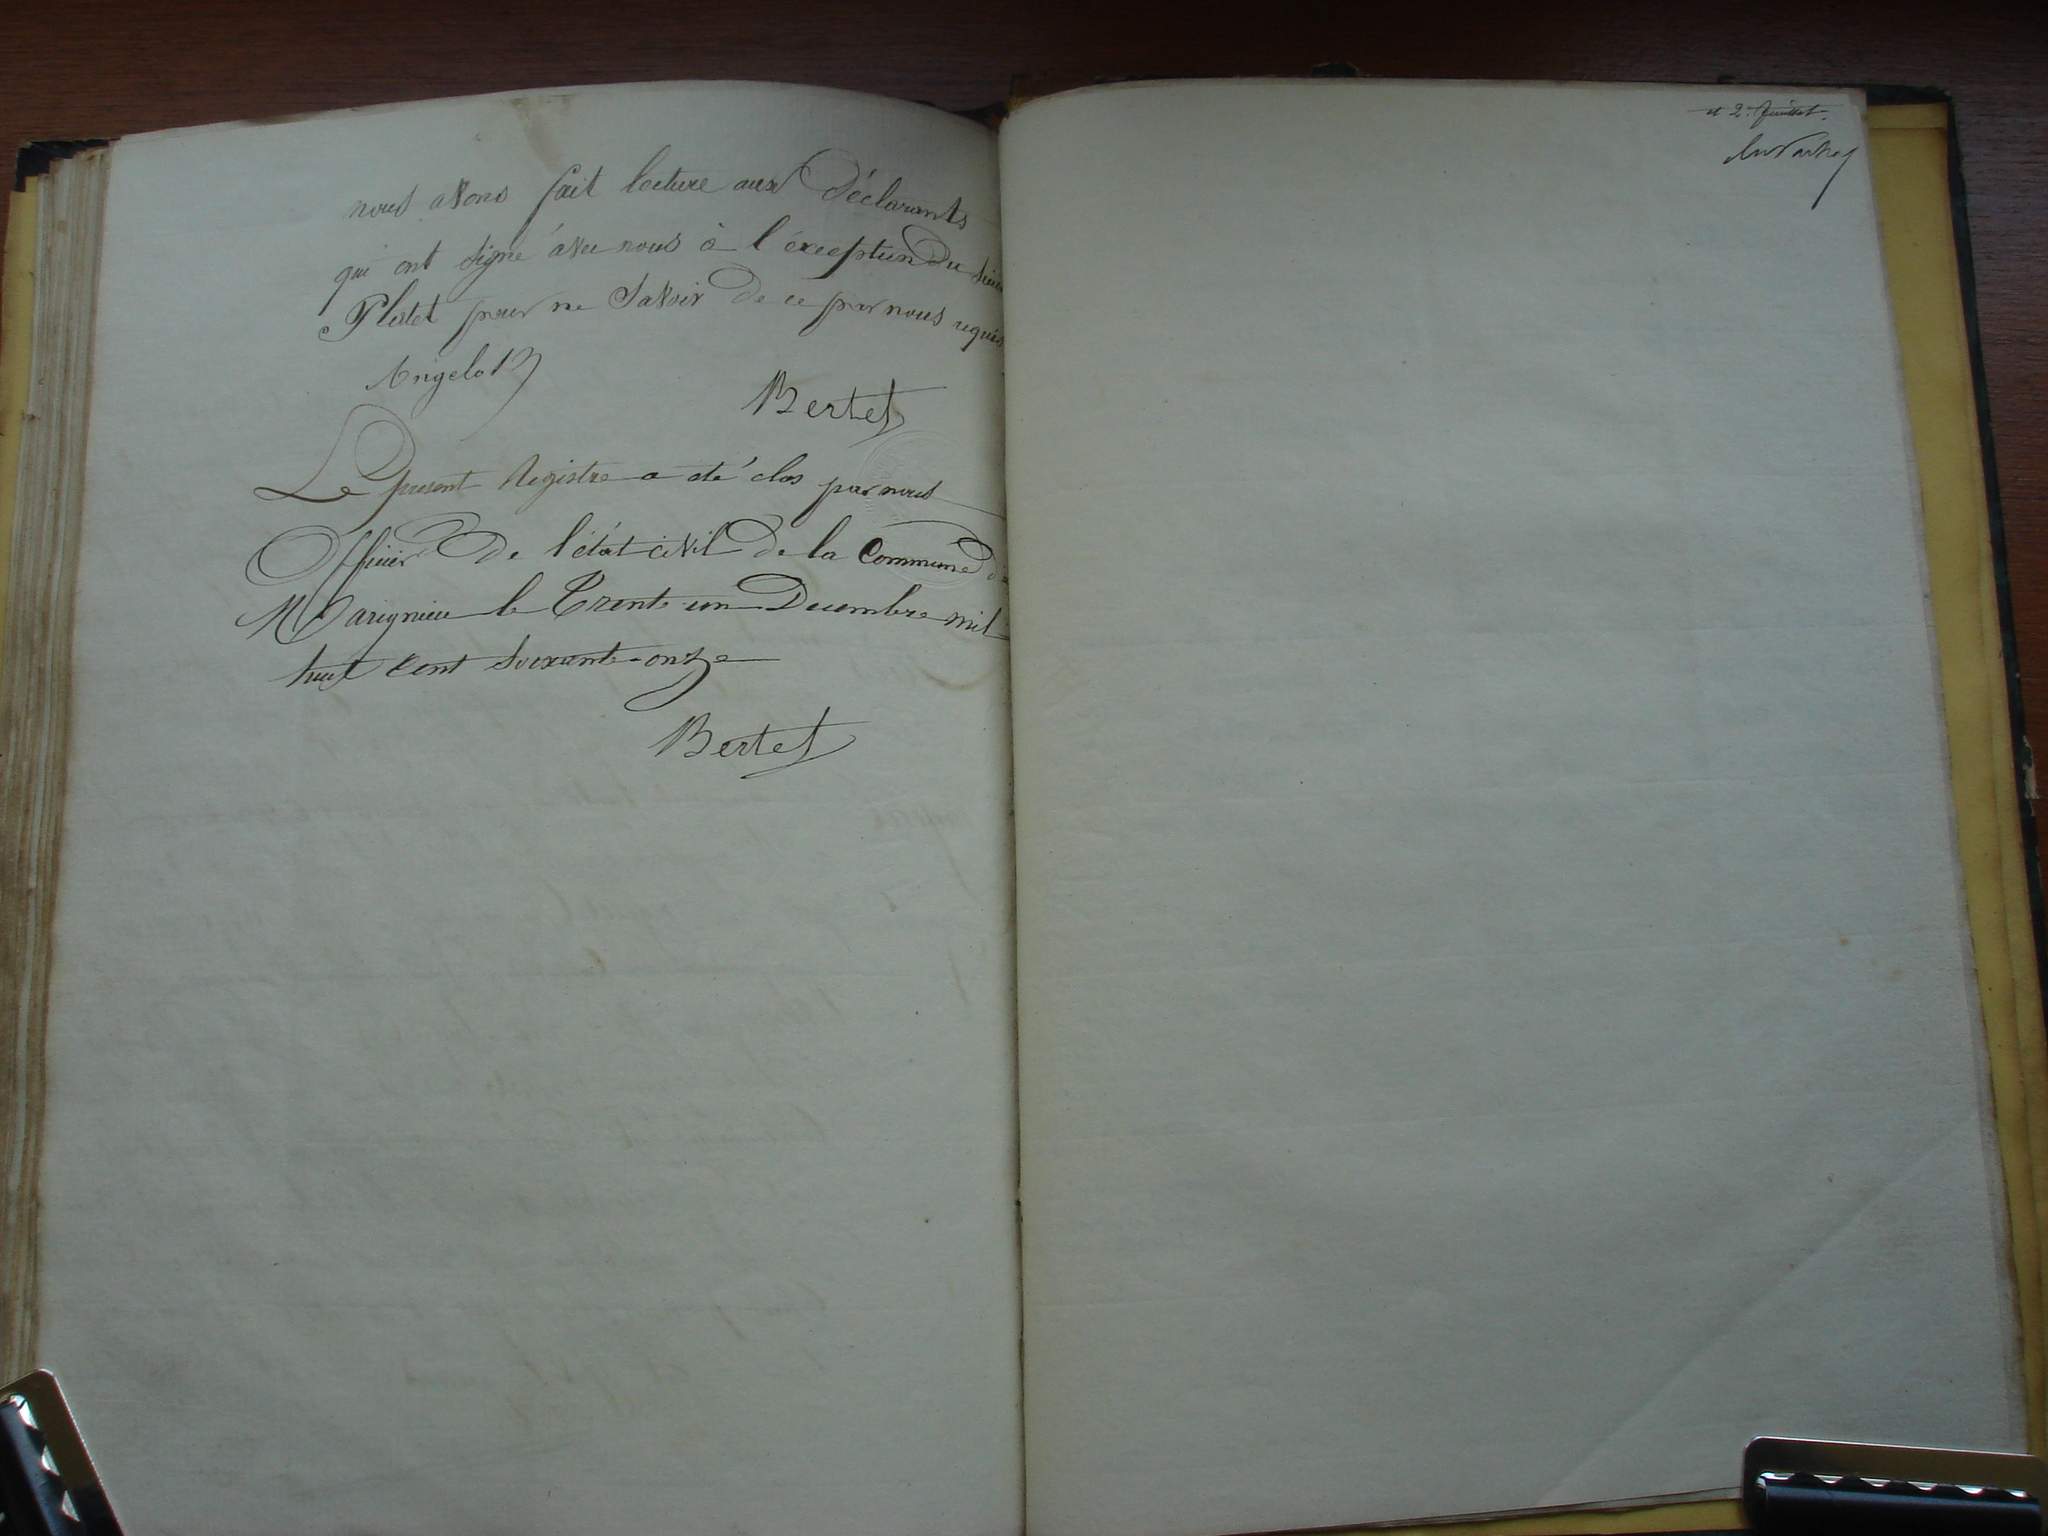 nous avons fait lecture aux déclarants
qui ont signé avec nous à l'éxception du sieur
Plutet pour ne savoir de ce par nous requis
Angelo
Bertet
Le présent Registre a été clos par nous
Officier de l'état civil de la Commune de
Marignieu le Trente un Decembre mil
huit cent soixante-onze
Bertet
et 2e feuillet.